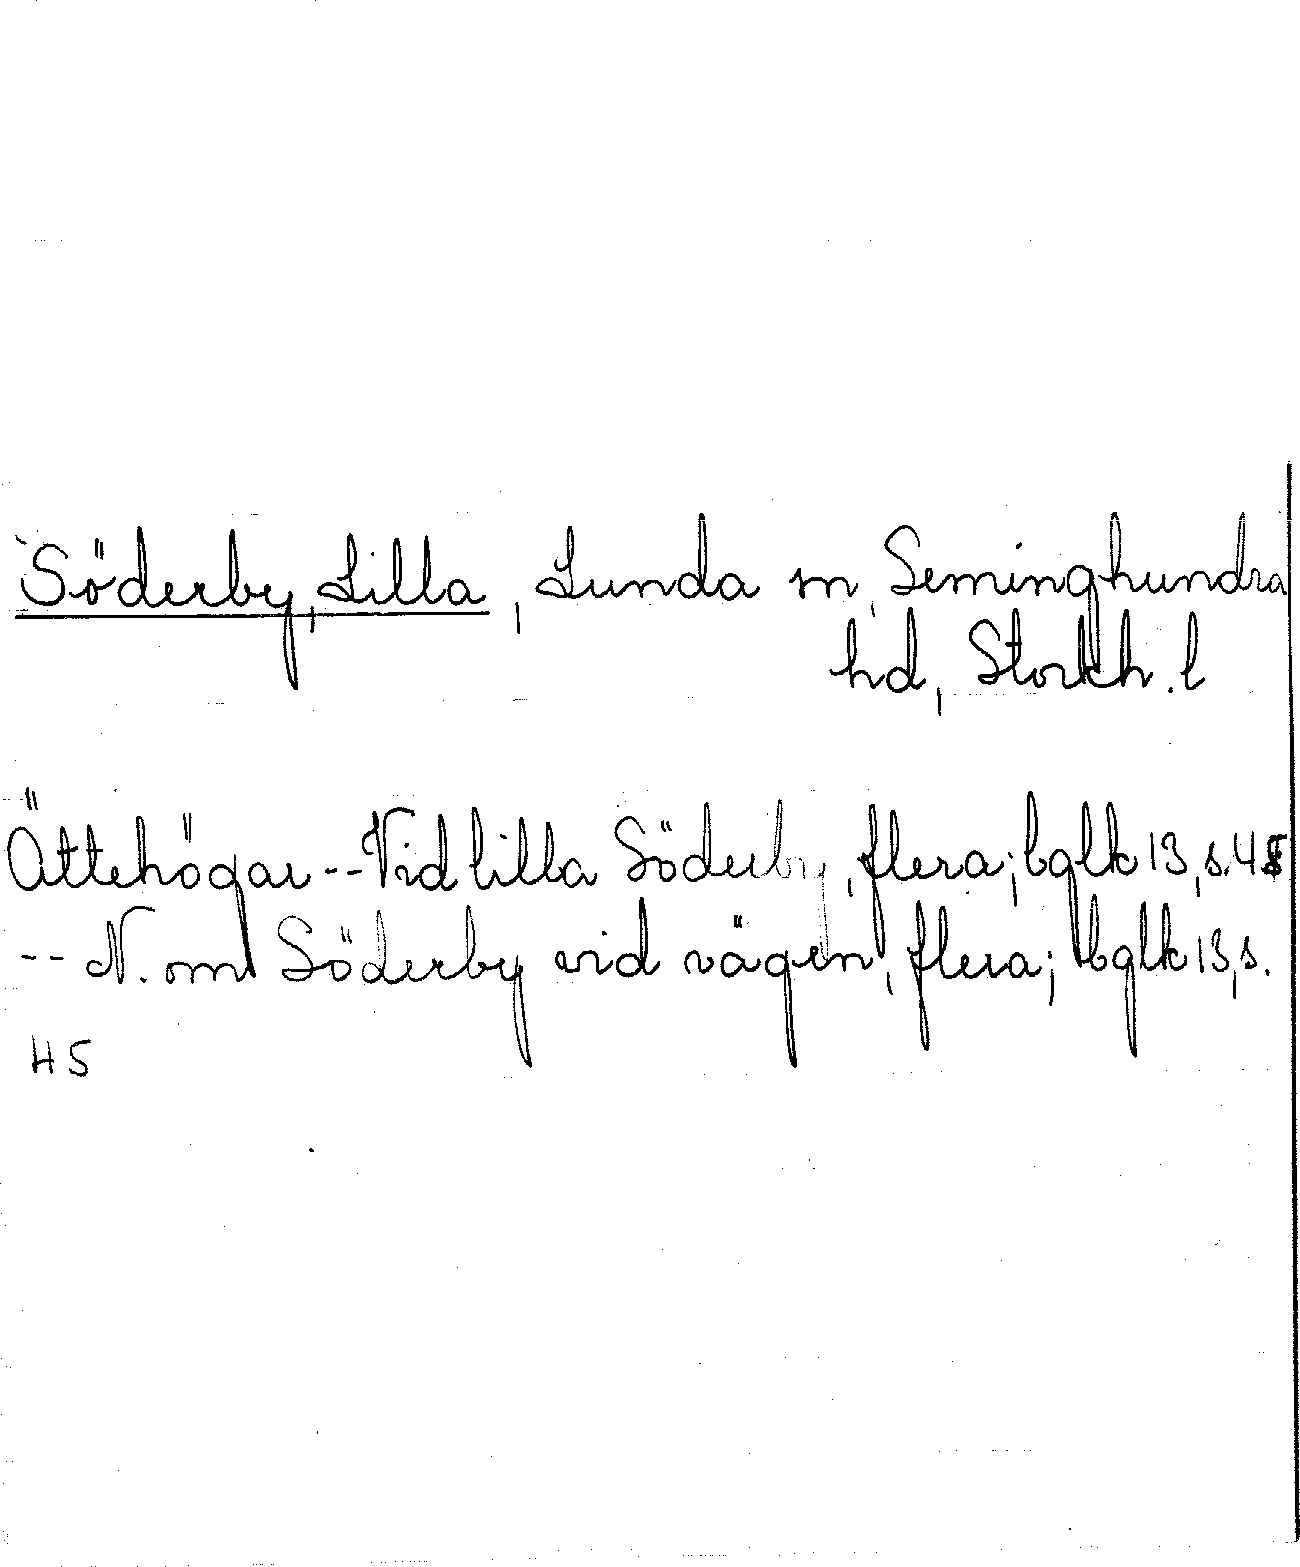 Söderby, Lilla, Lunda sn, Seminghundra
hd, Stockh. l
Ättehögar -- Vid lilla Söderby, flera; bglk 13, s. 45
-- N. om Söderby vid vägen, flera; bglk 13, s.
45